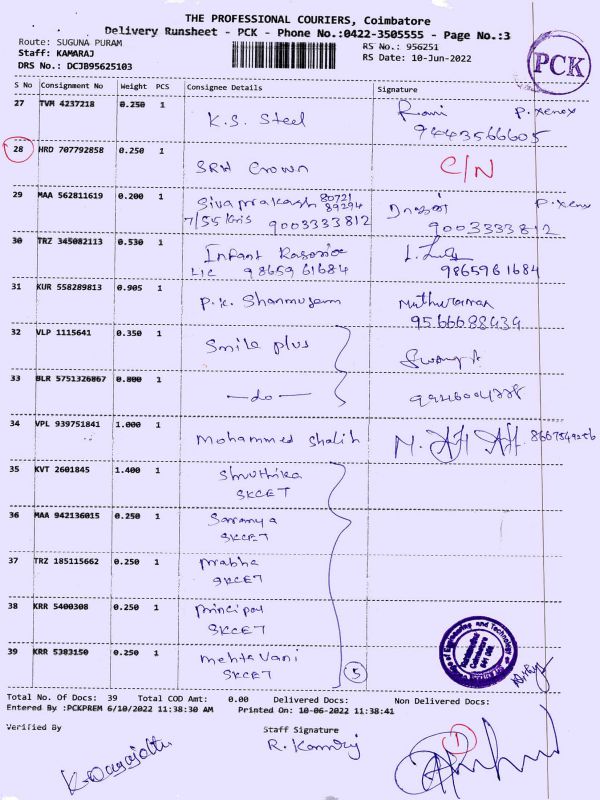 THE PROFESSIONAL COURIERS, Coimbatore
Delivery Runsheet - PCK - Phone No.:0422-3505555 - Page No.:3
Route: SUGUNA PURAM RS No.: 956251
Staff: KAMARAJ RS Date: 10-Jun-2022
DRS No.: DCJB95625103
PCK
S No Consignment No Weight PCS Consignee Details Signature
27 TVM 4237218 0.250 1 K.S. Steel Rani P.xenox
9443566605
28 HRD 707792858 0.250 1 SRH Crown C/N
29 MAA 562811619 0.200 1 Sivaprakash 80721 P.xenox
89294
7/55 9003333812 9003333812
30 TRZ 345082113 0.530 1 Infant
LIC 98659 61684 9865961684
31 KUR 558289813 0.905 1 P.K. Shanmugam Muthuraman
9566688434
32 VLP 1115641 0.350 1 Smile plus
33 BLR 5751326067 0.800 1 —do—
34 VPL 939751841 1.000 1 Mohammed Shalih
35 KVT 2601845 1.400 1 Shruthika
SKCET
36 MAA 942136015 0.250 1 Saranya
SKCET
37 TRZ 185115662 0.250 1 Prabha
SKCET
38 KRR 5400308 0.250 1 Principal
SKCET
39 KRR 5383150 0.250 1 Mehta Vani
SKCET 5
Total No. Of Docs: 39 Total COD Amt: 0.00 Delivered Docs: Non Delivered Docs:
Entered By :PCKPREM 6/10/2022 11:38:30 AM Printed On: 10-06-2022 11:38:41
Verified By Staff Signature
R. Kamraj
1